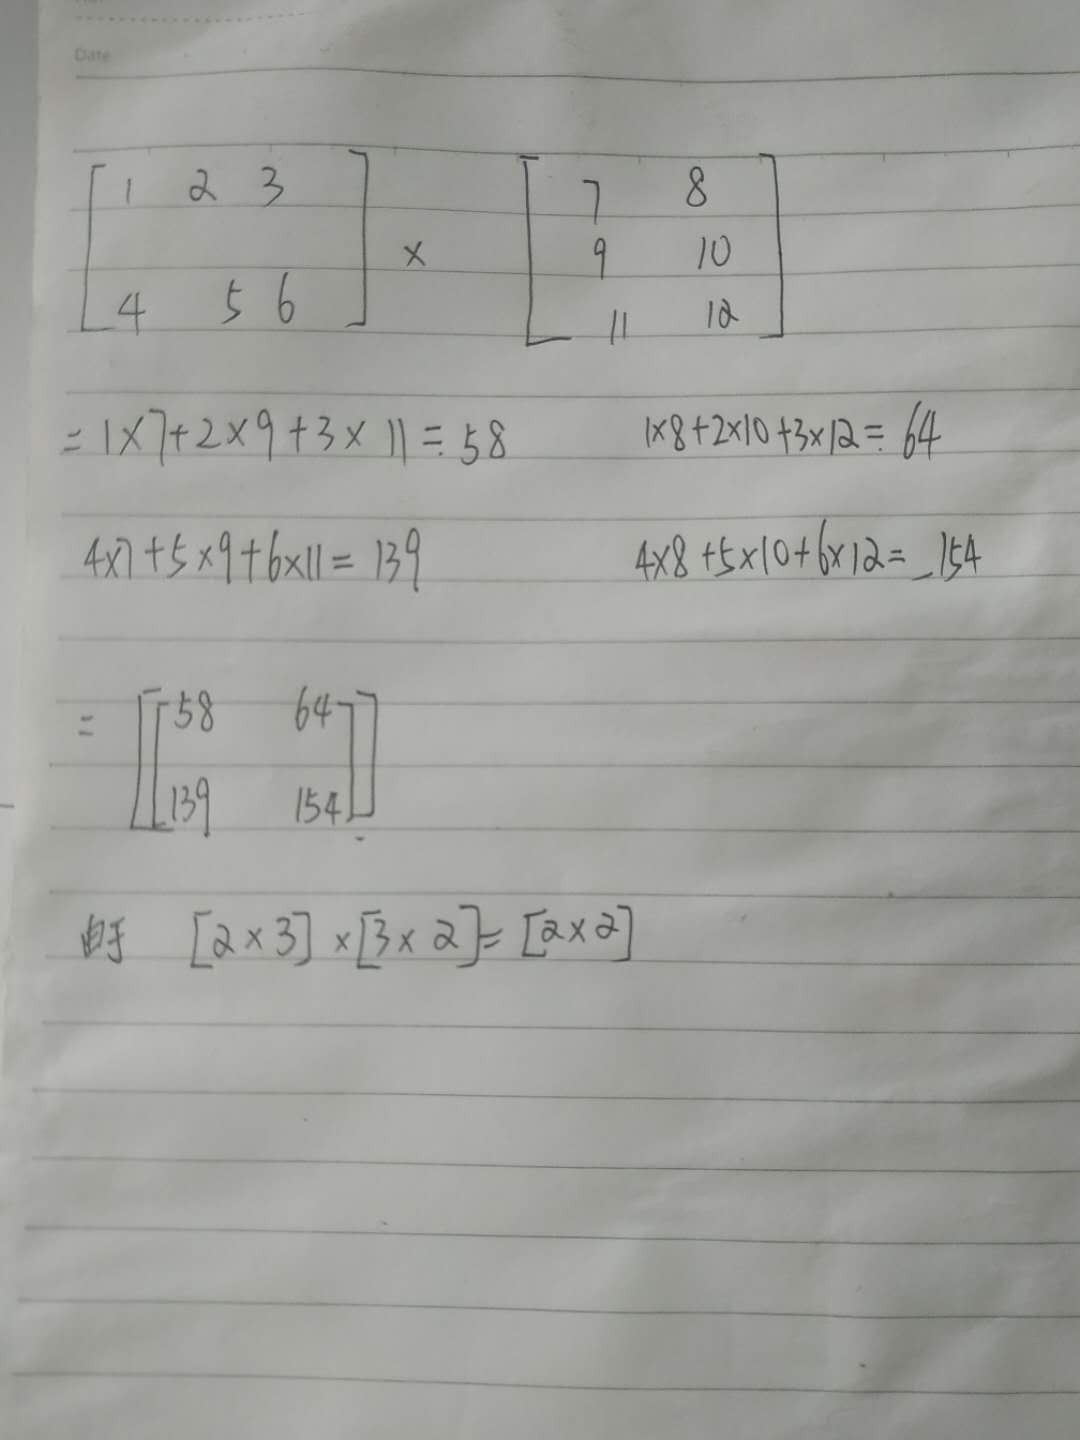 Date
1 2 3 7 8
× 9 10
4 5 6 11 12
= 1×7+2×9+3×11=58 1×8+2×10+3×12=64
4×7+5×9+6×11=139 4×8+5×10+6×12=154
= [[58 64
139 154]]
由于 [2×3]×[3×2]=[2×2]